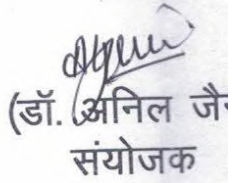 (डॉ. अनिल जै
संयोजक